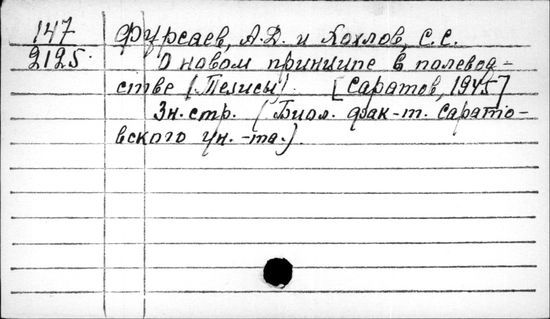 147 Фурсаев, А.Д. и Хохлов, С.С.
2125. О новом принципе в полевод-
стве (Тезисы). [Саратов, 1945]
3н. стр. (Биол. фак-т. Сарато-
вского ун.-та.)